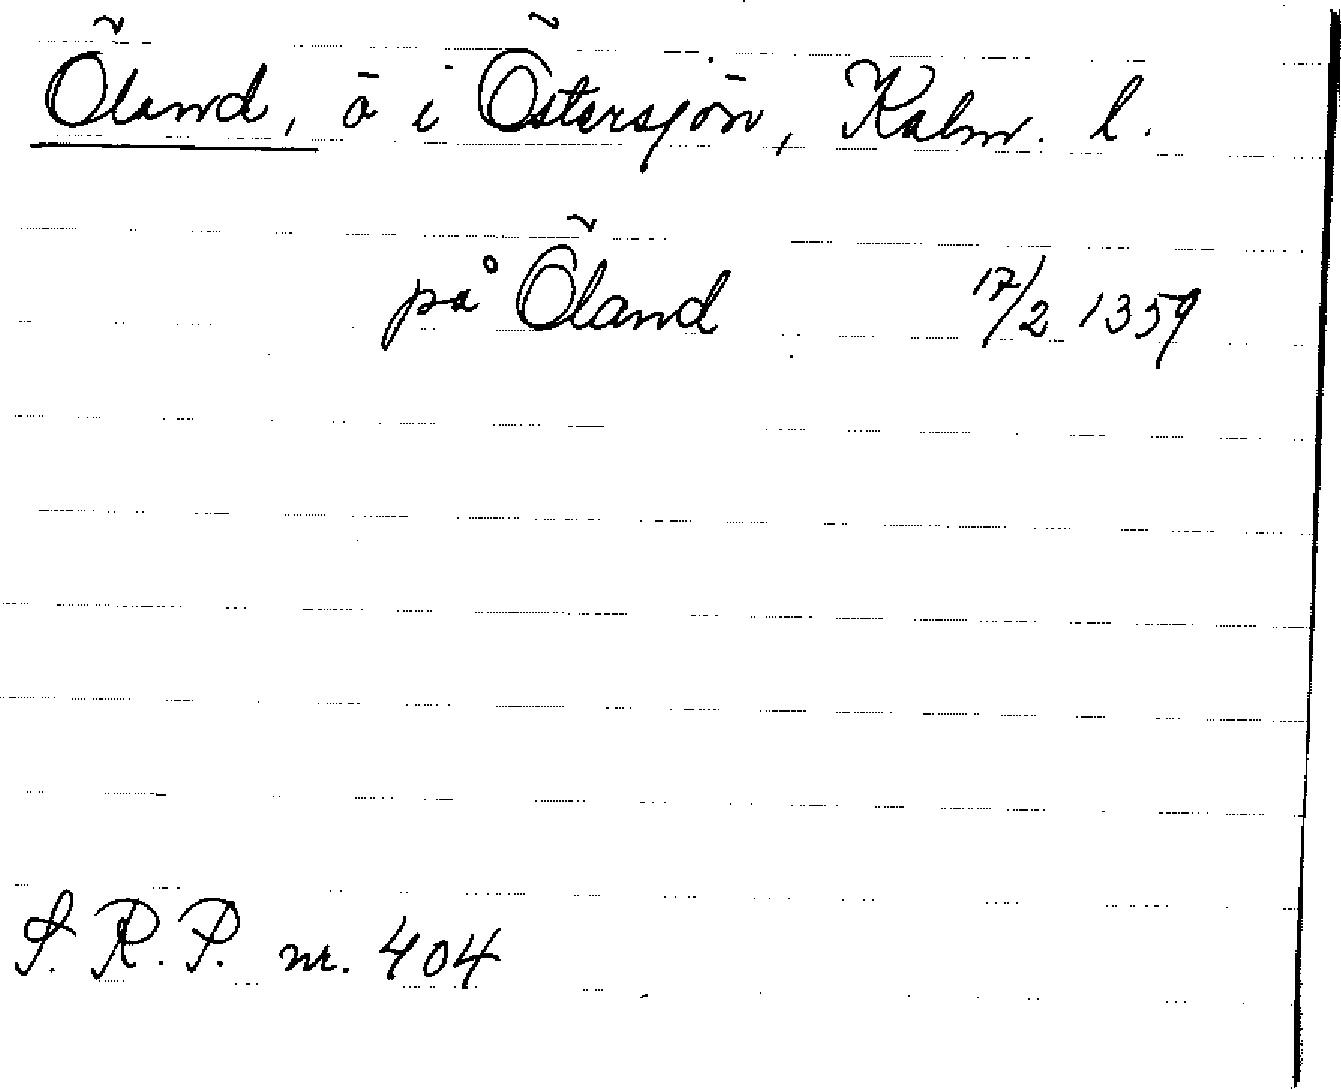 Öland, ö i Östersjön, Kalm. l.
på Öland 17/2 1359
S.R.P. nr. 404